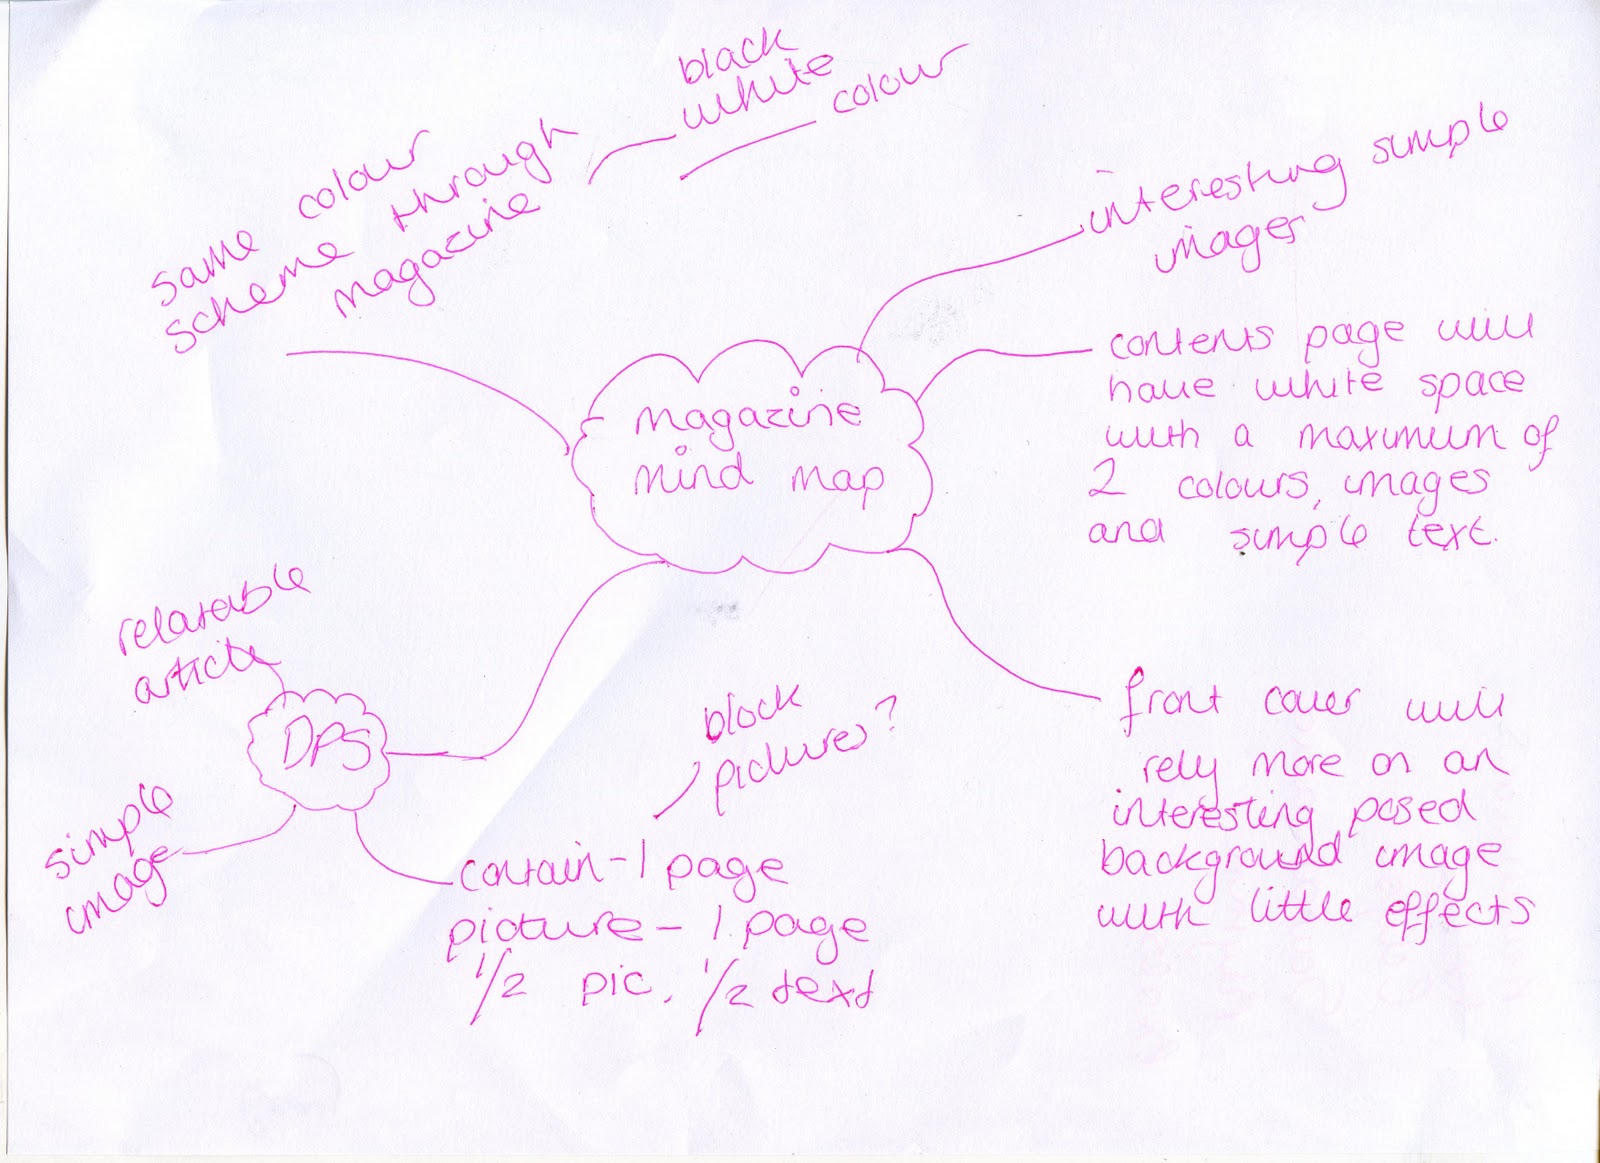 black
white
colour
same colour
scheme through
magazine
interesting simple
images
contents page will
have white space
with a maximum of
2 colours, images
and simple text.
magazine
mind map
relatable
article
DPS
simple
image
block
pictures?
contain - 1 page
picture - 1 page
1/2 pic, 1/2 text
front cover will
rely more on an
interesting posed
background image
with little effects